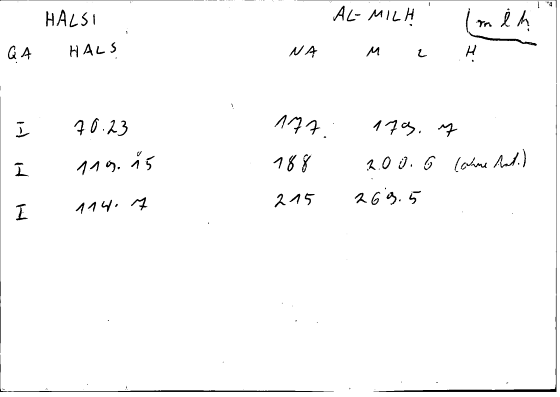 HALSI AL-MILH mlh
QA HALS NA M L H
I 70.23 177. 179. 7
I 119. 15 188 200. 6 (ohne Ant.)
I 114. 7 215 269.5